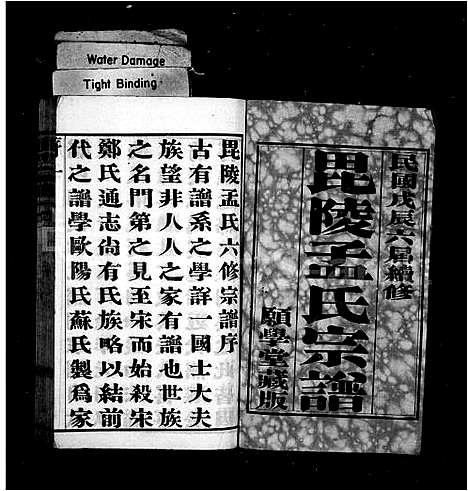 Water Damage
Tight Binding
民國戊辰六屆續修
毘陵孟氏宗譜
願學堂藏版
毘陵孟氏六修宗譜序
古有譜系之學詳一國士大夫
族望非人人之家有譜也世族
之名門第之見至宋而始殺宋
鄭氏通志尙有氏族略以結前
代之譜學歐陽氏蘇氏製爲家